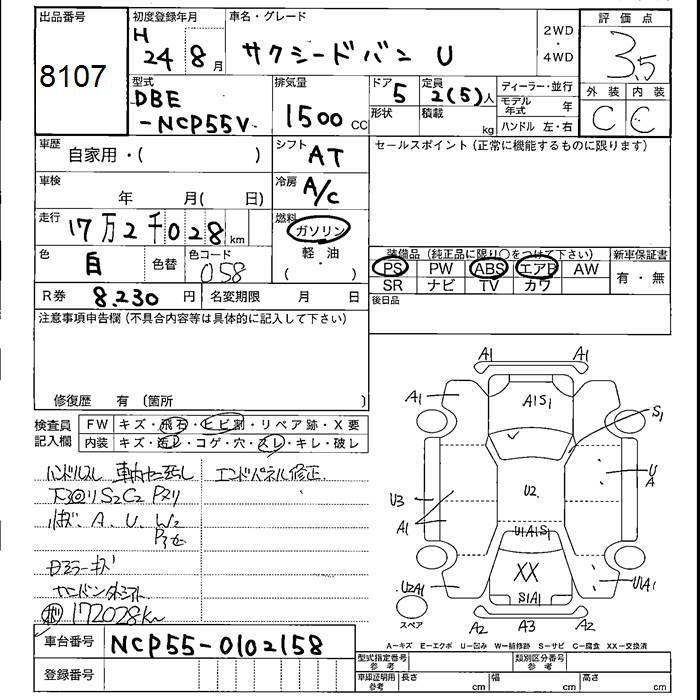 出品番号
8107
初度登録年月
H
24 8月
車名・グレード
サクシードバン U
2WD
・
4WD
評価点
3.5
外装 内装
C C
型式
DBE
-NCP55V
排気量
1500 CC
ドア
5
形状
定員
2(5)人
積載
kg
ディーラー・並行
モデル年式 年
ハンドル 左・右
車歴
自家用・( )
シフト
AT
セールスポイント(正常に機能するものに限ります)
車検
年 月( 日)
冷房
A/C
走行
17万2千028km
燃料
ガソリン
軽・油
( )
色
白
色替
色コード
058
装備品(純正品に限り○をつけて下さい)
新車保証書
PS PW ABS エアB AW
SR ナビ TV カワ
有・無
R券 8.230 円
名変期限 月 日
後日品
注意事項申告欄(不具合内容等は具体的に記入して下さい)
修復歴 有 〔箇所 〕
検査員
記入欄
FW キズ・飛石・ヒビ割・リペア跡・X要
内装 キズ・汚レ・コゲ・穴・スレ・キレ・破レ
ハンドルスレ
エンドパネル修正
S2 C2 Pヌリ
A. U. W2
172028km
A1 A1
A1 A1S1 A1
S1
U3 U2 U
A
A1
U1A1S1
XX
U2A1 S1A1 U1A1
スペア
A2 A3 A2
A=キズ E=エクボ U=凹み W=補修跡 S=サビ C=腐食 XX=交換済
車台番号 NCP55-0102158
登録番号
型式指定番号
参考
類別区分番号
参考
車庫証明用
参考
長さ cm 幅 cm 高さ cm